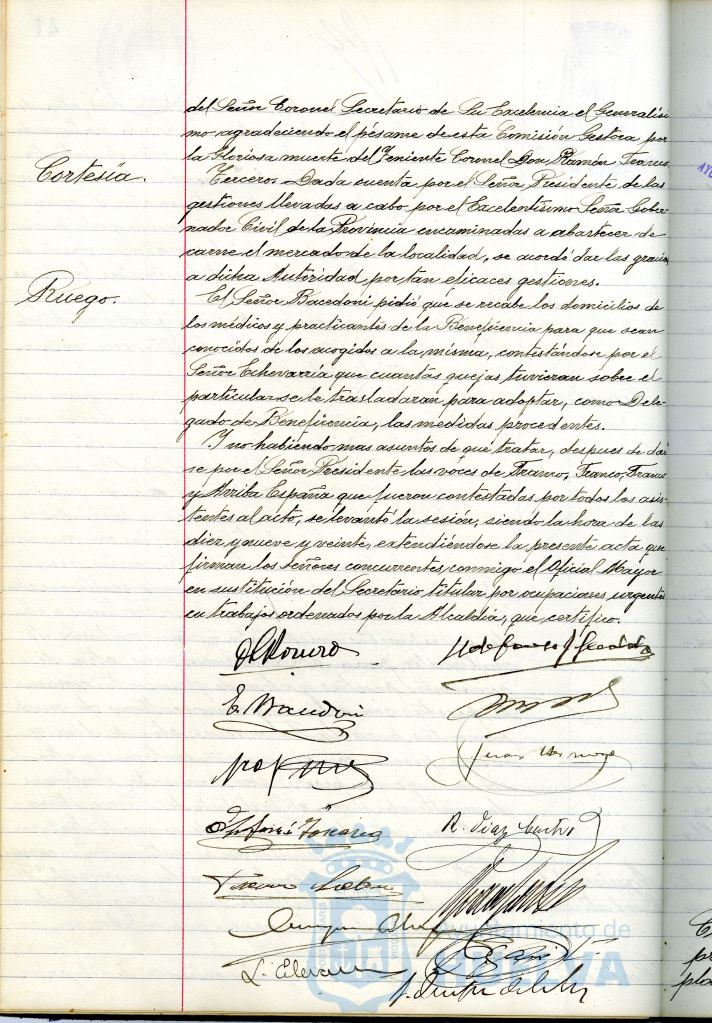 del Señor Coronel Secretario de Su Excelencia el Generalísi
mo agradeciendo el pésame de esta Comisión Gestora por
la Gloriosa muerte del Teniente Coronel Don Ramón Franco
Cortesía.
Tercero. Dada cuenta por el Señor Presidente de las
gestiones llevadas a cabo por el Excelentísimo Señor Gober-
nador Civil de la Provincia encaminadas a abastecer de
carne el mercado de la localidad, se acordó dar las gracias
a dicha Autoridad por tan eficaces gestiones.
Ruego.
El Señor Macedoni pidió que se recabe los domicilios de
los médicos y practicantes de la Beneficencia para que sean
conocidos de los acogidos a la misma, contestándose por el
Señor Echevarría que cuantas quejas tuvieran sobre el
particular se le trasladaran para adoptar, como Dele-
gado de Beneficencia, las medidas procedentes.
Y no habiendo mas asuntos de que tratar, despues de dar
se por el Señor Presidente las voces de Franco, Franco, Franco
y Arriba España que fueron contestadas por todos los asis-
tentes al acto, se levantó la sesión, siendo la hora de las
diez y nueve y veinte, extendiéndose la presente acta que
firman los señores concurrentes, conmigo el Oficial Mayor
en sustitución del Secretario titular por ocupaciones urgentes
en trabajos ordenados por la Alcaldía, que certifico.
R. Diaz
Ayuntamiento de
HUELVA